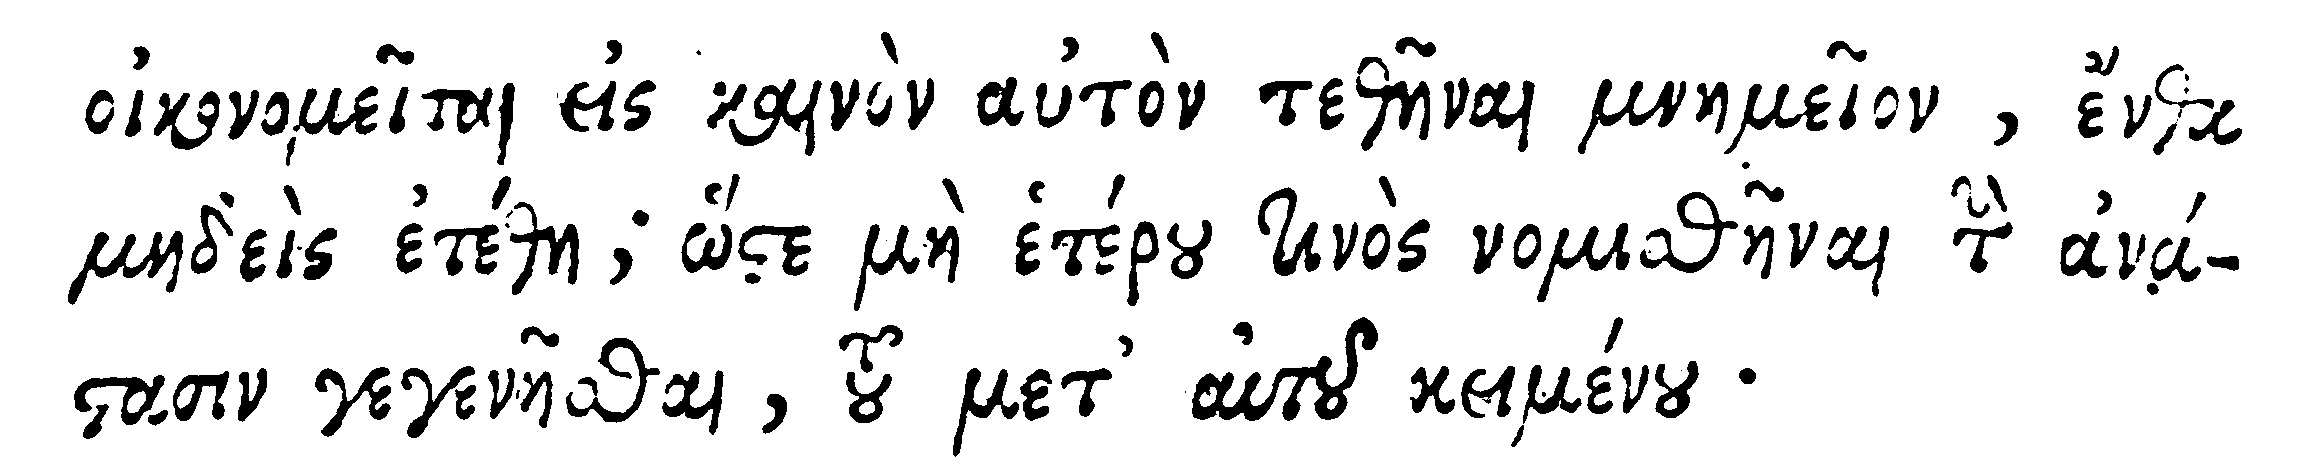 οἰκονομεῖται εἰς καινὸν αὐτὸν τεθῆναι μνημεῖον, ἔνθα
μηδεὶς ἐτέθη· ὥστε μὴ ἑτέρου τινὸς νομισθῆναι τὴν ἀνά-
στασιν γεγενῆσθαι, τοῦ μετ' αὐτοῦ κειμένου.